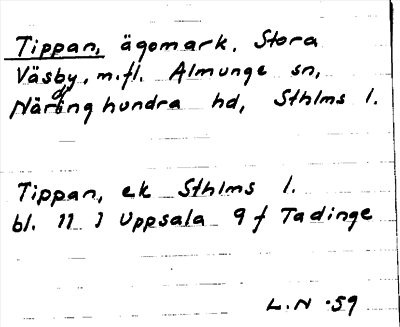 Tippan, ägomark, Stora
Väsby, m.fl. Almunge sn,
Närdinghundra hd, Sthlms l.
Tippan, ek Sthlms l.
bl. 11 J Uppsala 9 f Tadinge
L.N -59